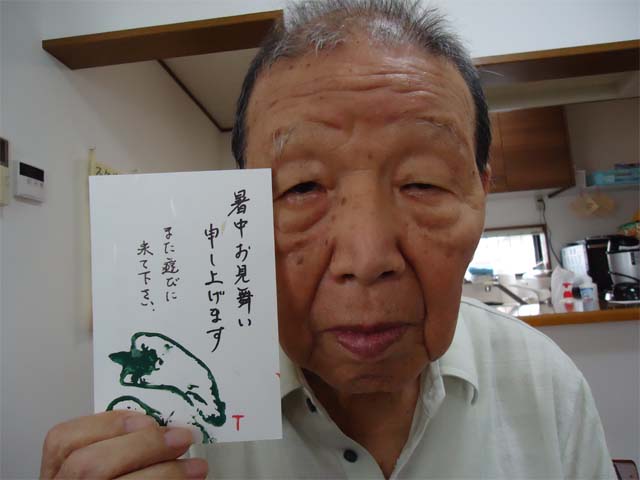 暑中お見舞い
申し上げます
また遊びに
来て下さい。
T